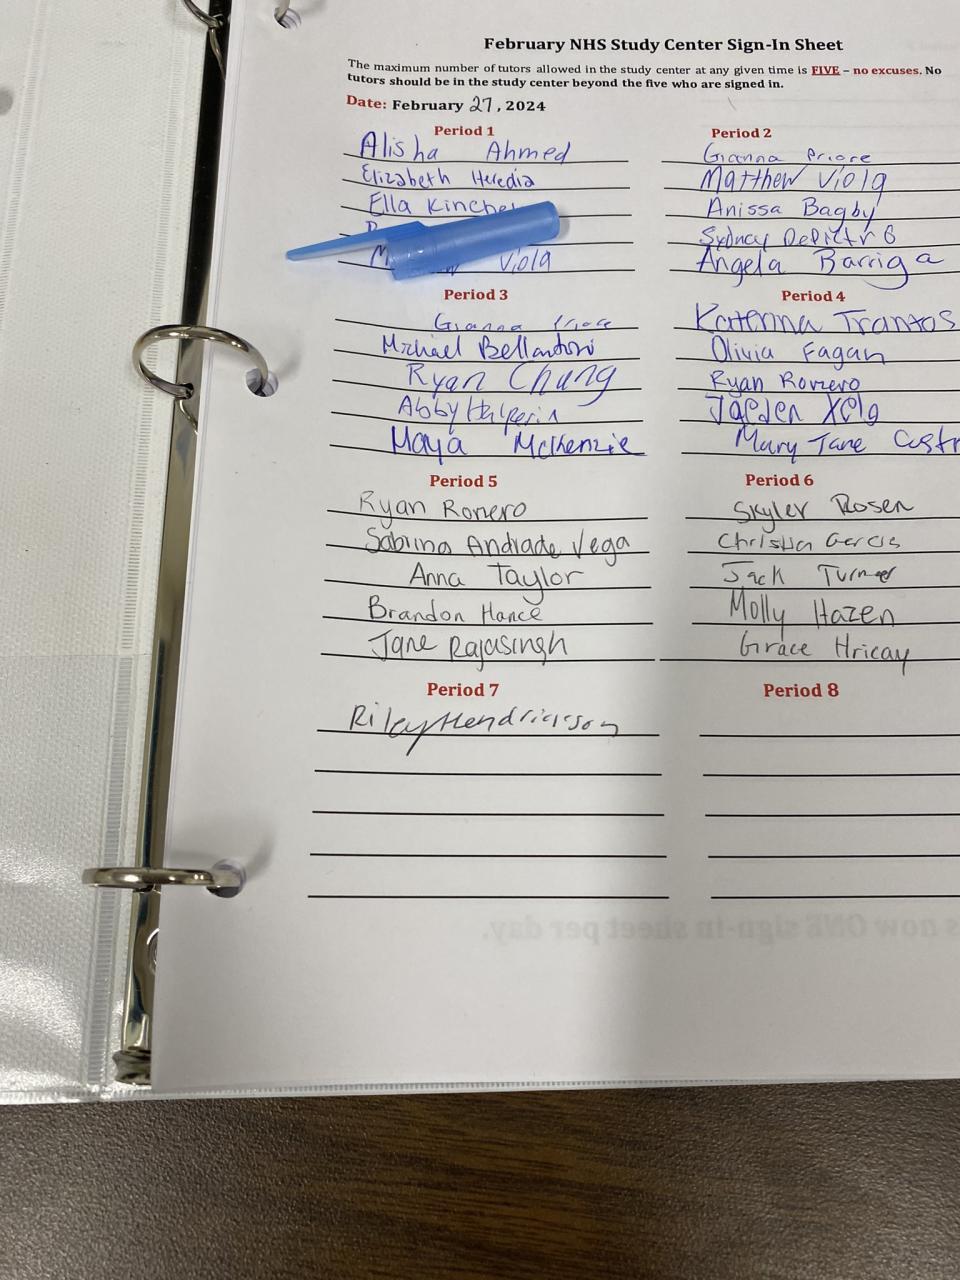 February NHS Study Center Sign-In Sheet
The maximum number of tutors allowed in the study center at any given time is FIVE – no excuses. No
tutors should be in the study center beyond the five who are signed in.
Date: February 27, 2024
Period 1
Alisha Ahmed
Elizabeth Heredia
Ella Kinche
Viola
Period 2
Gianna Priore
Matthew Viola
Anissa Bagby
Sydney
Angela Barriga
Period 3
Gianna Priore
Michael Bellantoni
Ryan Chung
Abby Halperin
Maya McKenzie
Period 4
Katerina Trantos
Olivia Fagan
Ryan Romero
Jaeden Xelo
Mary Jane Castr
Period 5
Ryan Romero
Sabrina Andrade Vega
Anna Taylor
Brandon Hance
Jane Rajasingh
Period 6
Skyler Rosen
Christian
Jack Turner
Molly Hazen
Grace Hricay
Period 7
Riley Hendrickson
Period 8
s now ONE sign-in sheet per day.